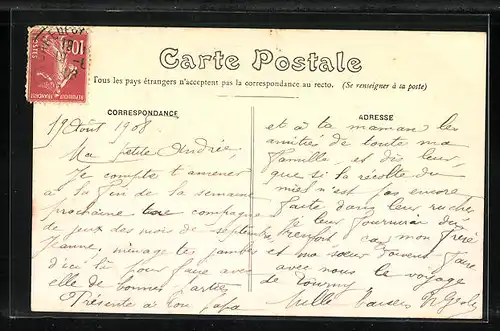 Carte Postale
Tous les pays étrangers n'acceptent pas la correspondance au recto. (Se renseigner à la poste)
CORRESPONDANCE
19 Août 1908
Ma petite Andrée,
Je compte t'amener
à la fin de la semaine
prochaine une compagne
de jeux des mois de septembre,
Jeanne, ménage tes jambes
d'ici là pour faire avec
elle de bonnes parties
Présente à ton papa
ADRESSE
et à ta maman les
amitiés de toute ma
famille, et dis leur,
que si la récolte du
miel n'est pas encore
faite dans leur ruche
leur fournirai du
renfort car mon frère
et ma sœur doivent faire
avec nous le voyage
de
Mille baisers
10
POSTES